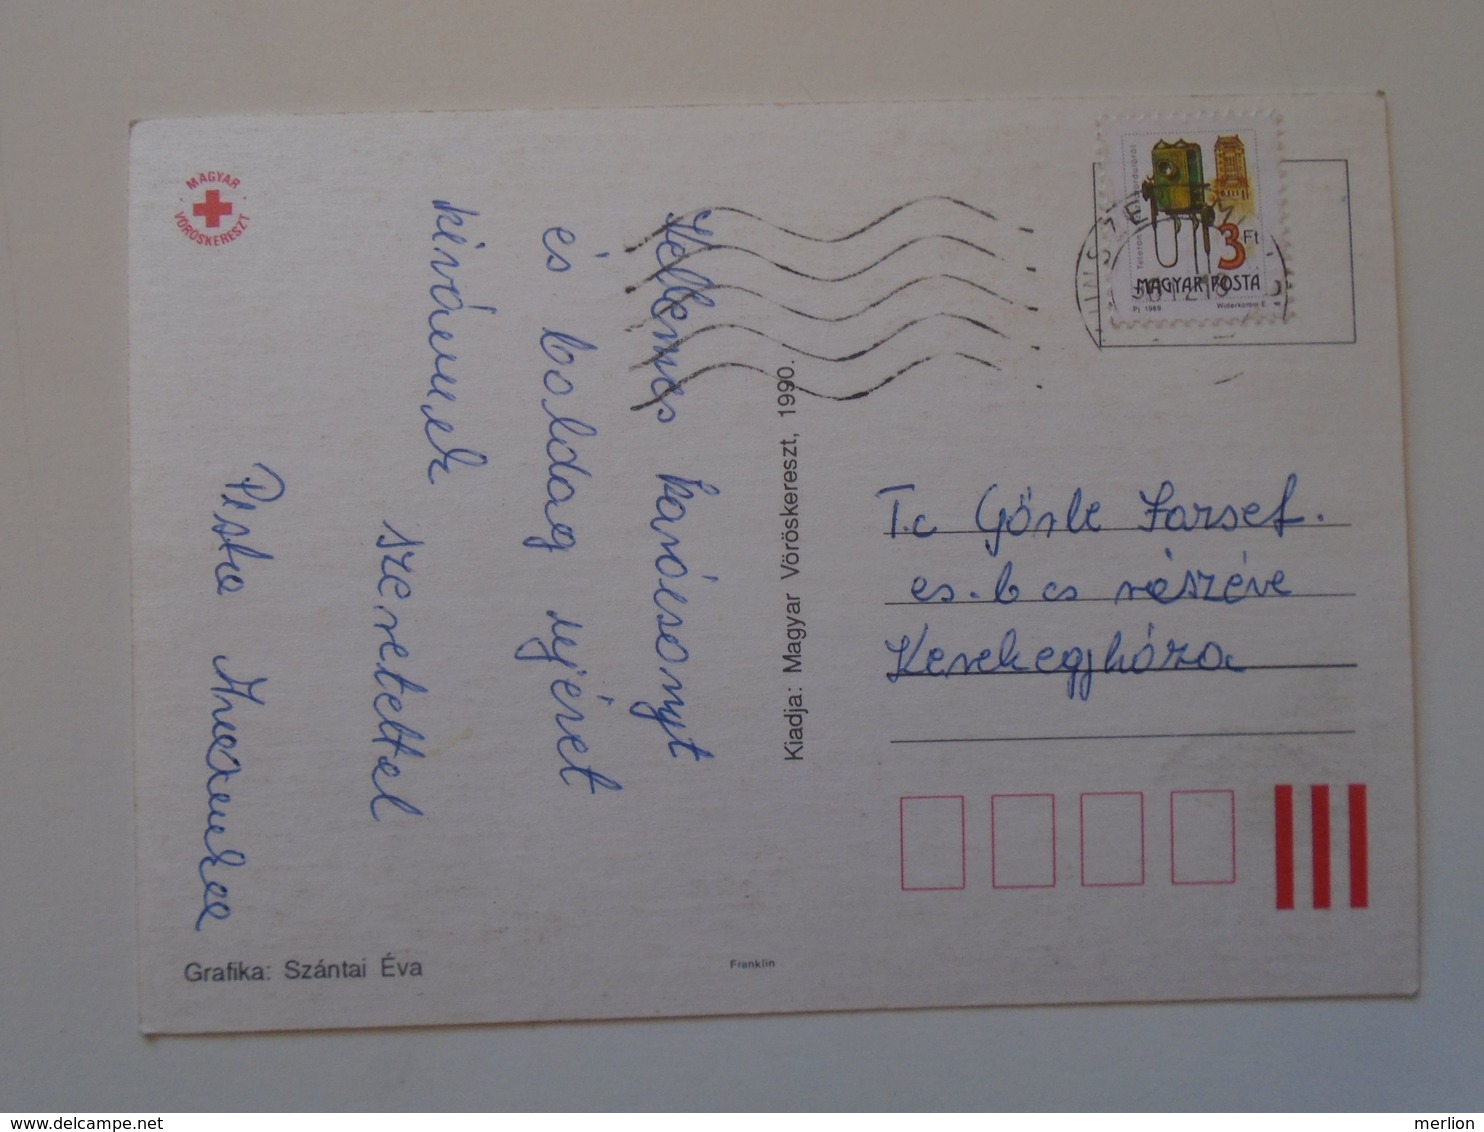 MAGYAR
VÖRÖSKERESZT
Kellemes karácsonyt
és boldog újévet
kívánnak
szeretettel
Pista Annamka
Grafika: Szántai Éva
Franklin
Kiadja: Magyar Vöröskereszt, 1990.
3 Ft
MAGYAR POSTA
Pj 1989 Widerkomm E.
T.c Görbe József.
és. b cs részére
Kerekegyháza
merlion